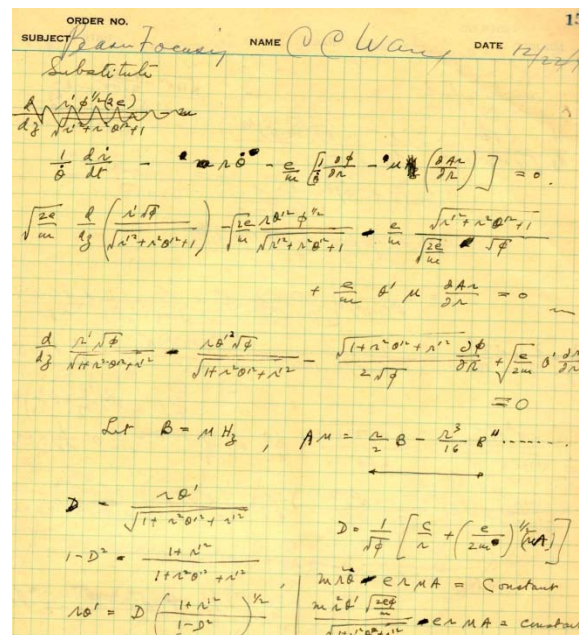 ORDER NO.
15
SUBJECT Beam Focusing NAME C C Wang DATE 12/22/
Substitute
d/dz r'φ^{1/2}(2e) / √(r'²+r²θ'²+1)
1/θ̇ dṙ/dt - rθ̇ - e/m [1/θ̇ ∂φ/∂r - μ (∂Ar/∂r)] = 0.
√(2e/m) d/dz (r'√φ / √(r'²+r²θ'²+1)) - √(2e/m) rθ'²φ^{1/2} / √(r'²+r²θ'²+1) - e/m √(r'²+r²θ'²+1) / (√(2e/m) √φ)
+ e/m θ' μ ∂Ar/∂r = 0
d/dz r'√φ / √(1+r²θ'²+r'²) - rθ'²√φ / √(1+r²θ'²+r'²) - √(1+r²θ'²+r'²) / (2√φ) ∂φ/∂r + √(e/2m) θ'
= 0
Let B = μ H_z , Aμ = r/2 B - r³/16 B'' ......
D = rθ' / √(1+r²θ'²+r'²)
D = 1/√φ [C/r + (e/2m)^{1/2} (μA)]
1-D² = (1+r'²) / (1+r²θ'²+r'²)
, m r²θ̇ - e r μ A = Constant
rθ' = D ((1+r'²) / (1-D²))^{1/2}
m r²θ' √(2eφ/m) / √(1+r²θ'²+r'²) - e r μ A = constant